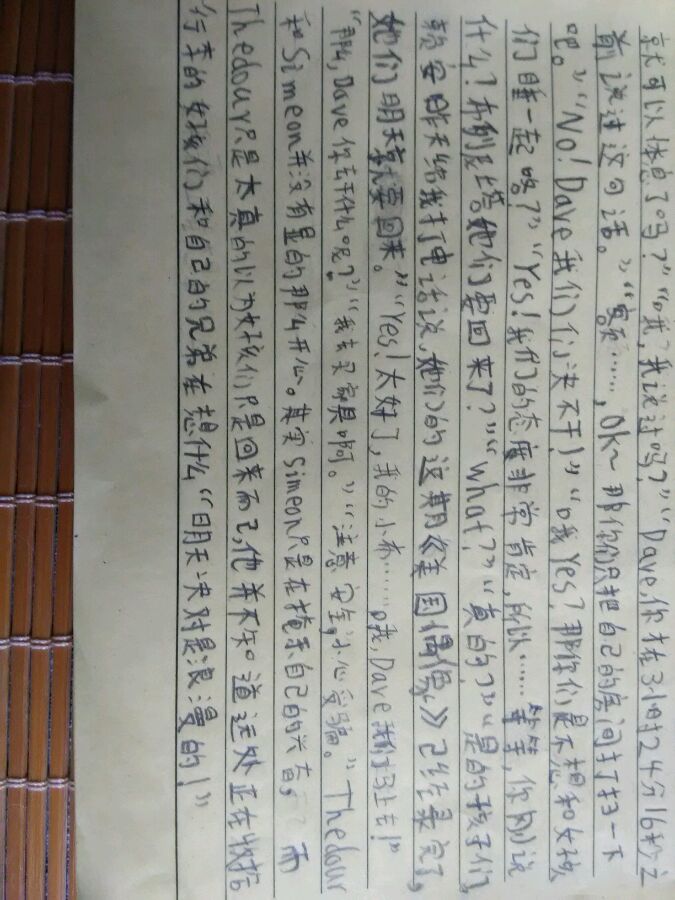 就可以休息了吗？”“哦？我说过吗？”“Dave，你才在3小时24分16秒之
前说过这句话。”“……，OK~那你们只把自己的房间打扫一下
吧。”“No！Dave我们们决不干！”“哦Yes？那你们是不想和女孩
们睡一起咯？”“Yes！我们的态度非常肯定，所以……等等，你刚说
什么？布列塔她们要回来了？”“what？”“真的？”“是的孩子们，
凯安昨天给我打了电话说，她们的这期《美国偶像》已经录完了，
她们明天就要回来。”“Yes！太好了，我的小布……。哦，Dave我们马上去！”
“那么，Dave你去干什么呢？”“我去买家具啊。”“注意安全，小心受骗。”Thedour
和Simeon并没有显的那么开心。其实Simeon只是在掩示自己的兴奋，而
Thedour只是太真的以为女孩们只是回来而已，他并不知道远处正在收拾
行李的女孩们和自己的兄弟在想什么“明天决对是浪漫的！”